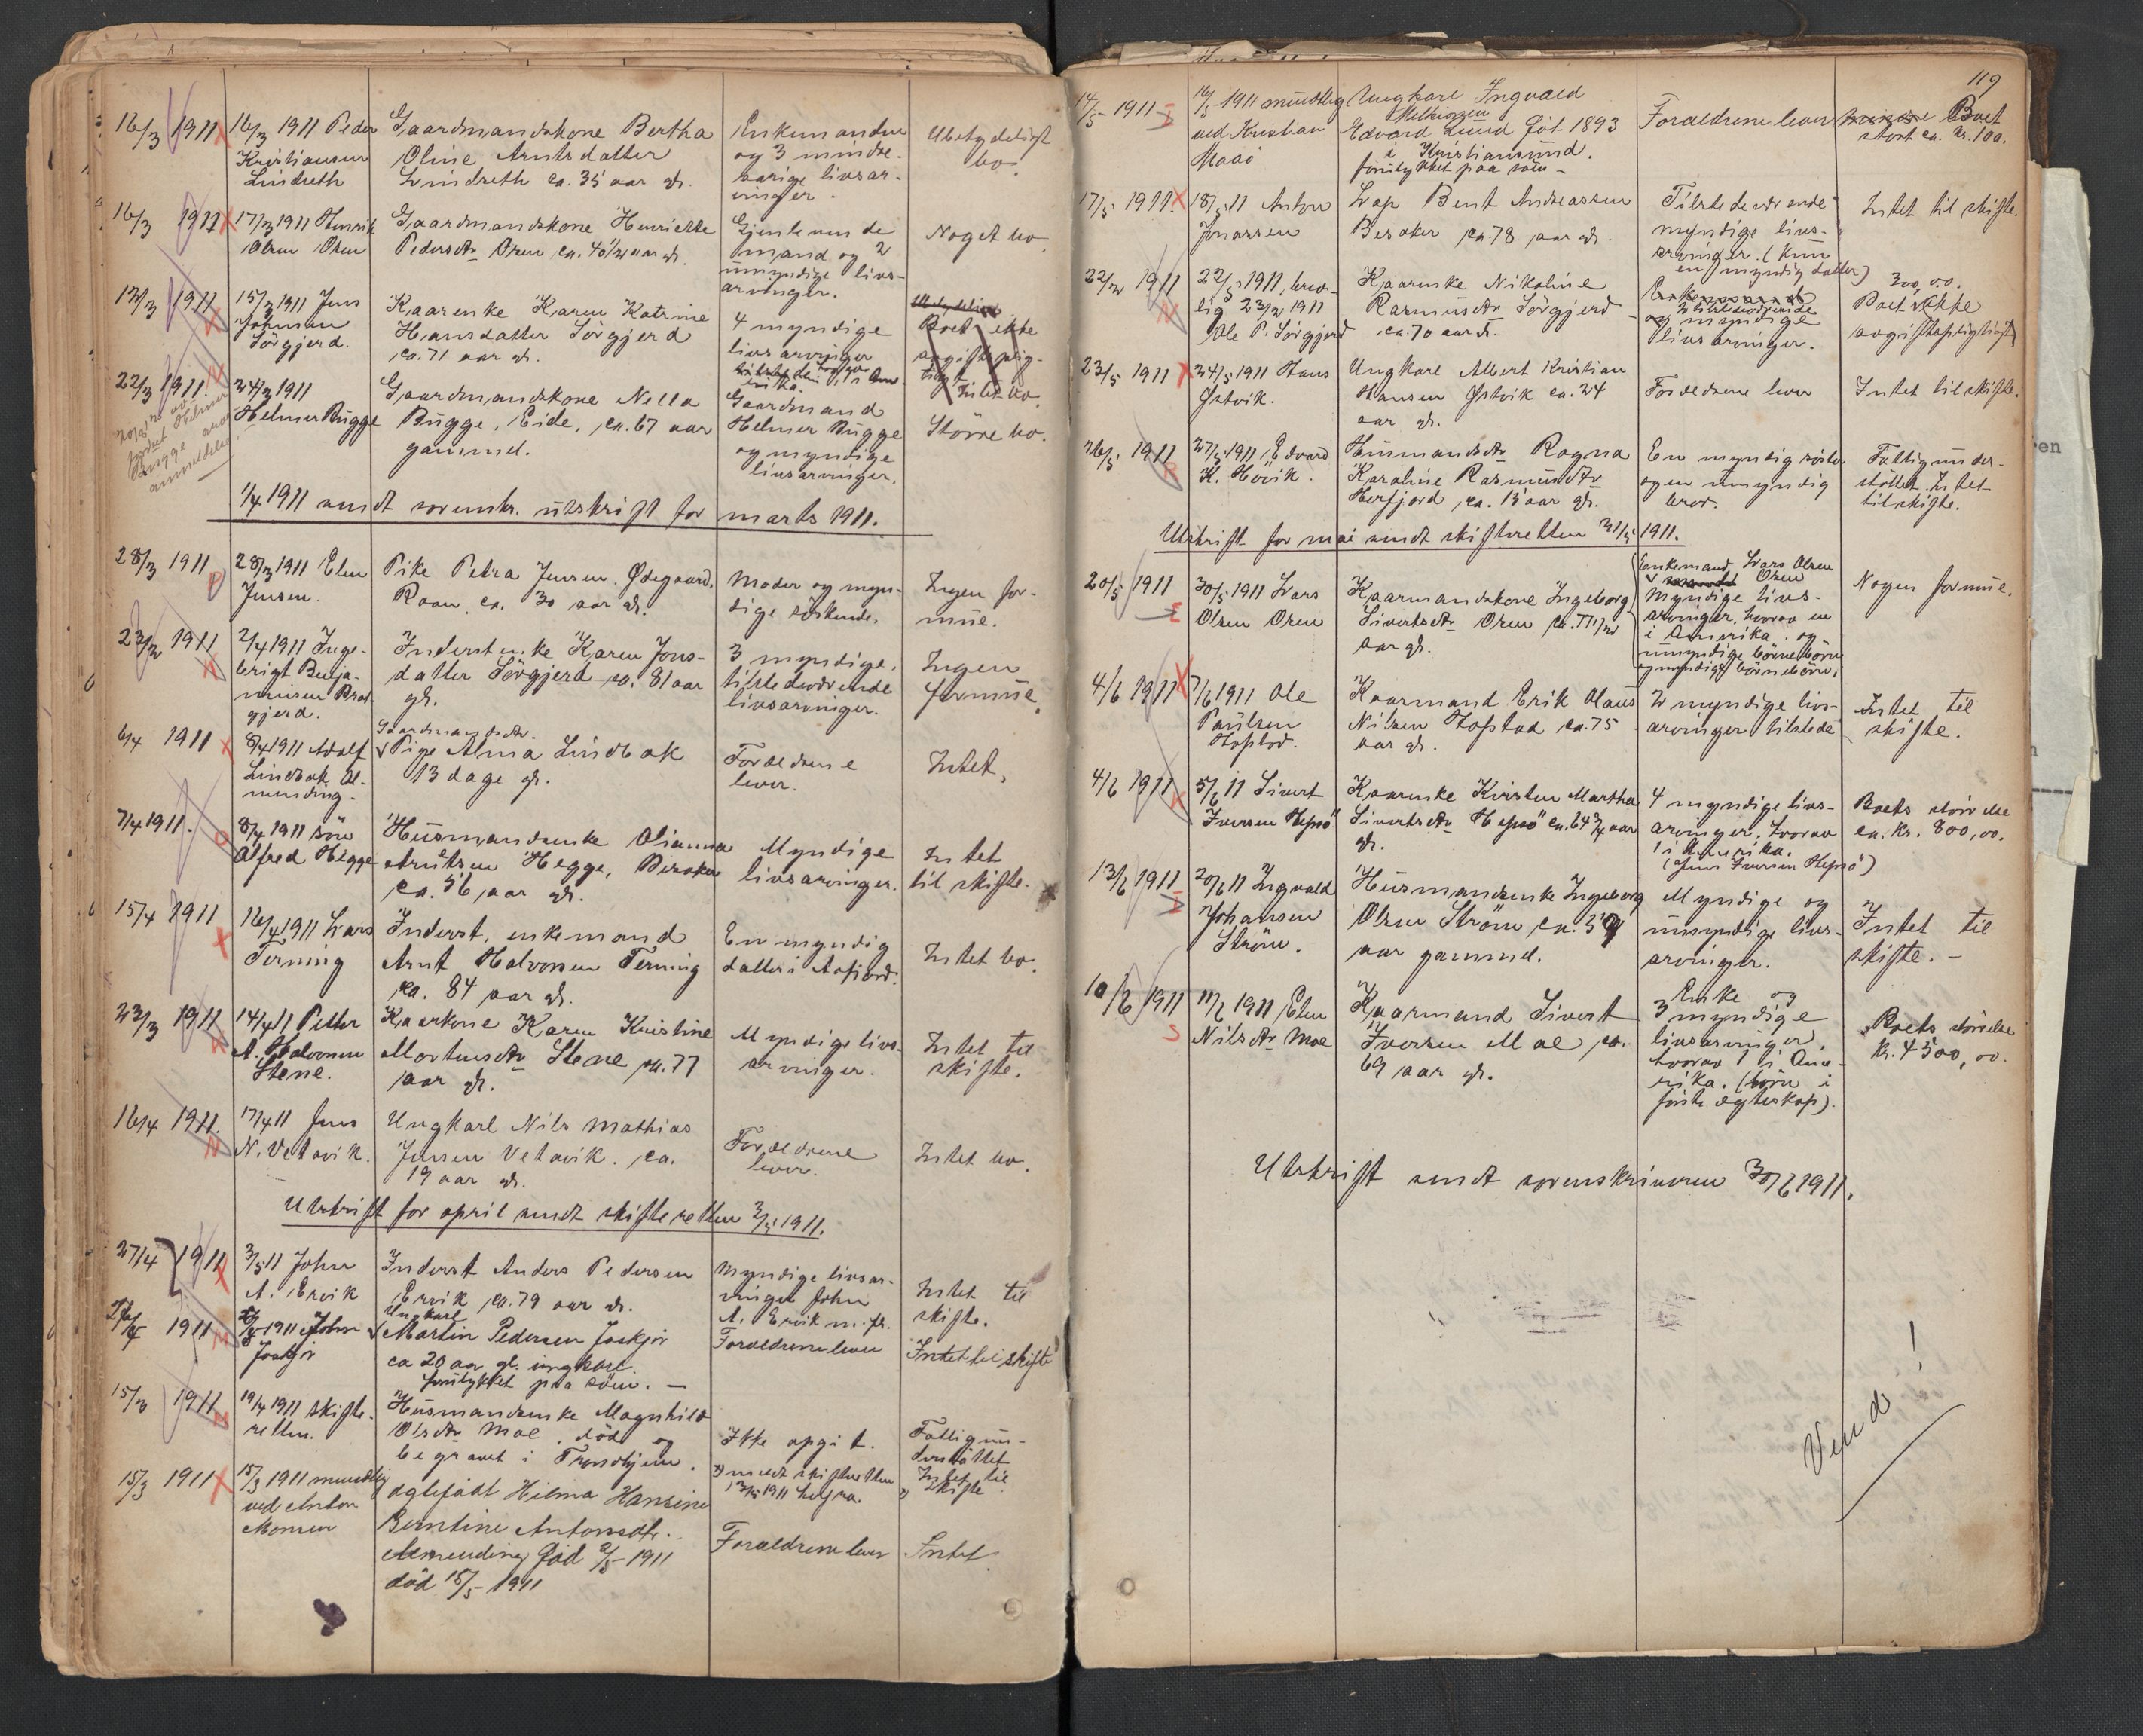 16/3 1911 16/3 1911 Peder Gaardmandskone Bertha Enkemanden Ubetydeligt
Kristiansen Oline Arntsdatter og 3 mindre- bo.
Lindseth Lindseth ca. 35 aar gl. aarige livsar-
vinger.
16/3 1911 17/3 1911 Henrik Gaardmandskone Henriette Gjenlevende Noget bo
Olsen Osen Pedersdtr Osen ca. 40 1/2 aar gl. mand og 2
umyndige livs-
arvinger.
13/3 1911 15/3 1911 Jens Kaarenke Karen Katrine 4 myndige Boet ikke
Johnsen Hansdatter Sörgjerd livsarvinger avgiftsplig-
Sörgjerd. ca. 71 aar gl. tigt
Intet bo.
22/3 1911. 24/3 1911 Gaardmandskone Nella Gaardmand Större bo.
Helmer Bugge Bugge, Eide, ca. 67 aar Helmer Bugge
gammel. og myndige
livsarvinger.
Helmer
Bugge
anmeldelse
1/4 1911 sendt sorenskr. utskrift for marts 1911.
28/3 1911 28/3 1911 Elen Pike Petra Jensen Ødegaard, Moder og myn- Ingen for-
Jensen. Roan, ca. 30 aar gl. dige söskende. mue.
23/2 1911 2/4 1911 Inge- Inderstenke Karen Jons- 3 myndige, Ingen
brigt Benja- datter Sörgjerd, ca. 81 aar tilstedeværende formue.
minsen gl. livsarvinger.
gjerd.
6/4 1911 8/4 1911 Adolf Gaardmandsdtr.
Lindbak Al- Pige Alma Lindbak Forældrene Intet.
mending. 13 dage gl. lever.
7/4 1911. 8/4 1911 sön Husmandsenke Olianna Myndige Intet
Alfred Hegge Arntsen Hegge, Besaker livsarvinger. til skifte.
ca. 56 aar gl.
15/4 1911 16/4 1911 Lars Inderst, enkemand En myndig Intet bo.
Terning Arnt Halvorsen Terning datter i Aafjord.
ca. 84 aar gl.
23/3 1911 14/4 11 Petter Kaarkone Karen Kristine Myndige livs- Intet til
A. Halvorsen Mortensdtr Stene ca. 77 arvinger. skifte.
Stene. aar gl.
16/4 1911. 17/4 11 Jens Ungkarl Nils Mathias Forældrene Intet bo.
N. Vetavik. Jensen Vetavik. ca. lever.
19 aar gl.
Utskrift for april sendt skifteretten 2/5 1911.
27/4 1911 3/5 11 John Inderst Anders Pedersen Myndige livsar- Intet til
A. Ervik Ervik ca. 79 aar gl. vinger John skifte.
A. Ervik m. fl.
1911 1911 John Ungkarl
Martin Pedersen Joskjör Forældrene lever Intet til skifte
Joskjör ca 20 aar gl. ungkarl.
forulykket paa söen. —
15/3 1911 19/4 1911 skifte- Husmandsenke Magnhild Ikke opgit. Fattigun-
retten. Olsdtr Moe, död og derstöttet
begravet i Trondhjem. sendt skifteretten Intet til
1911 skifte
15/3 1911 15/3 1911 mundtlig ægtefödt Hilma Hansine
ved Anton Berntine Antonsdtr.
Monsen Almending Föd 2/5 1911 Forældrene lever Intet
död 15/5 1911
119
14/5 1911 16/5 1911 mundtlig Ungkarl Ingvald
Melkiorsen
ved Kristian Edvard Lund föt 1893 Forældrene lever Boet
Maaö i Kristiansund. stort ca. kr. 100.
forulykket paa söen —
17/5 1911. 18/5 11 Anton Lap Bent Andreassen Tilstedeværende Intet til skifte.
Jonassen Besaker ca. 78 aar gl. myndige livs-
arvinger. (kun
en myndig datter)
22/2 1911 22/5 1911, brev- Kaarenke Nikoline Enkemand 300,00.
lig 23/2 1911 Rasmusdtr Sörgjerd 2 tilstedeværende Boet ikke
Ole P. Sörgjerd ca. 70 aar gl. og myndige avgiftspligtigt
livsarvinger.
23/5 1911 24/5 1911 Hans Ungkarl Albert Kristian Forældrene lever Intet til skifte.
Østvik. Hansen Østvik ca. 24
aar gl.
26/5 1911 27/5 1911 Edvard Husmandsdtr Ragna En myndig söster Fattigunder-
K. Hövik. Karoline Rasmusdtr og en umyndig stöttet. Intet
Hofjord, ca. 15 aar gl. bror. til skifte.
Utskrift for mai sendt skifteretten 31/5 1911.
20/5 1911 30/5 1911 Lars Kaarmandskone Ingeborg Enkemand Lars Olsen Nogen formue.
Olsen Osen Sivertsdtr Osen ca. 77 1/2 Osen
aar gl. Myndige livs-
arvinger, hvorav en
i Amerika. og
umyndige börnebörn
og myndige börnebörn.
4/6 1911 7/6 1911 Ole Kaarmand Erik Olaus 2 myndige livs- Intet til
Paulsen Nilsen Hopstad ca. 75 arvinger tilstede skifte.
Hopstad. aar gl.
4/6 1911 5/6 11 Sivert Kaarenke Kirsten Martha 4 myndige livs- Boets störrelse
Iversen Hepsö Sivertsdtr Hepsö ca. 64 3/4 aar arvinger, hvorav ca. kr. 800,00.
gl. 1 i Amerika.
(Jens Iversen Hepsö)
13/6 1911 20/6 11 Ingvald Husmandsenke Ingeborg Myndige og Intet til
Johansen Olsen Ström, ca. 59 umyndige livs- skifte. —
Ström. aar gammel. arvinger.
10/6 1911 11/6 1911 Elen Kaarmand Sivert Enke og Boets störrelse
Nilsdtr Moe Iversen Moe ca. 3 myndige kr. 4500,00.
69 aar gl. livsarvinger,
hvorav 1 i Ame-
rika. (börn i
förste ægteskap).
Utskrift sendt sorenskriveren 30/6 1911.
Vend!